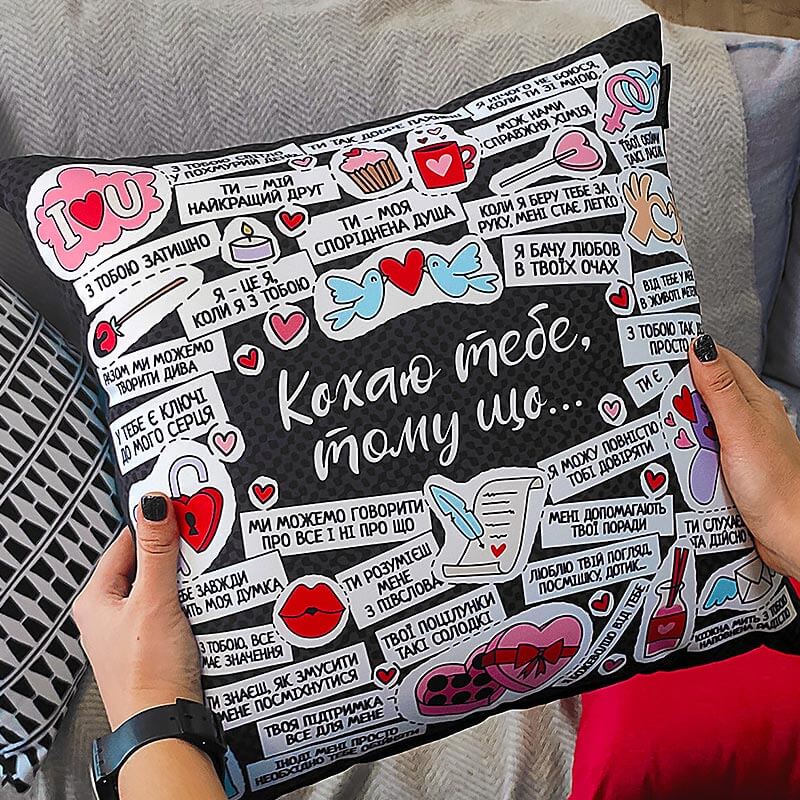 Я НІЧОГО НЕ БОЮСЯ,
КОЛИ ТИ ЗІ МНОЮ
З ТОБОЮ
У ПОХМУРИЙ
ТИ ТАК ДОБРЕ
МІЖ НАМИ
СПРАВЖНЯ ХІМІЯ
ТВОЇ
ТАКІ
I U
ТИ – МІЙ
НАЙКРАЩИЙ ДРУГ
ТИ – МОЯ
СПОРІДНЕНА ДУША
КОЛИ Я БЕРУ ТЕБЕ ЗА
РУКУ, МЕНІ СТАЄ ЛЕГКО
З ТОБОЮ ЗАТИШНО
Я – ЦЕ Я,
КОЛИ Я З ТОБОЮ
Я БАЧУ ЛЮБОВ
В ТВОЇХ ОЧАХ
ВІД ТЕБЕ У
В ЖИВОТІ
РАЗОМ МИ МОЖЕМО
ТВОРИТИ ДИВА
З ТОБОЮ ТАК
ПРОСТО
У ТЕБЕ Є КЛЮЧІ
ДО МОГО СЕРЦЯ
Кохаю тебе,
тому що...
ТИ Є
Я МОЖУ ПОВНІСТЮ
ТОБІ ДОВІРЯТИ
МИ МОЖЕМО ГОВОРИТИ
ПРО ВСЕ І НІ ПРО ЩО
МЕНІ ДОПОМАГАЮТЬ
ТВОЇ ПОРАДИ
ТИ СЛУХАЄШ
ТА ДІЙСНО
ЗАВЖДИ
МОЯ ДУМКА
ТИ РОЗУМІЄШ
МЕНЕ
З ПІВСЛОВА
ЛЮБЛЮ ТВІЙ ПОГЛЯД,
ПОСМІШКУ, ДОТИК...
З ТОБОЮ ВСЕ
МАЄ ЗНАЧЕННЯ
ТВОЇ ПОЦІЛУНКИ
ТАКІ СОЛОДКІ
Я БОЖЕВОЛІЮ ВІД ТЕБЕ
КОЖНА МИТЬ З ТОБОЮ
НАПОВНЕНА РАДІСТЮ
ТИ ЗНАЄШ, ЯК ЗМУСИТИ
МЕНЕ ПОСМІХНУТИСЯ
ТВОЯ ПІДТРИМКА
ВСЕ ДЛЯ МЕНЕ
ІНОДІ МЕНІ ПРОСТО
НЕОБХІДНО ТЕБЕ ОБІЙНЯТИ